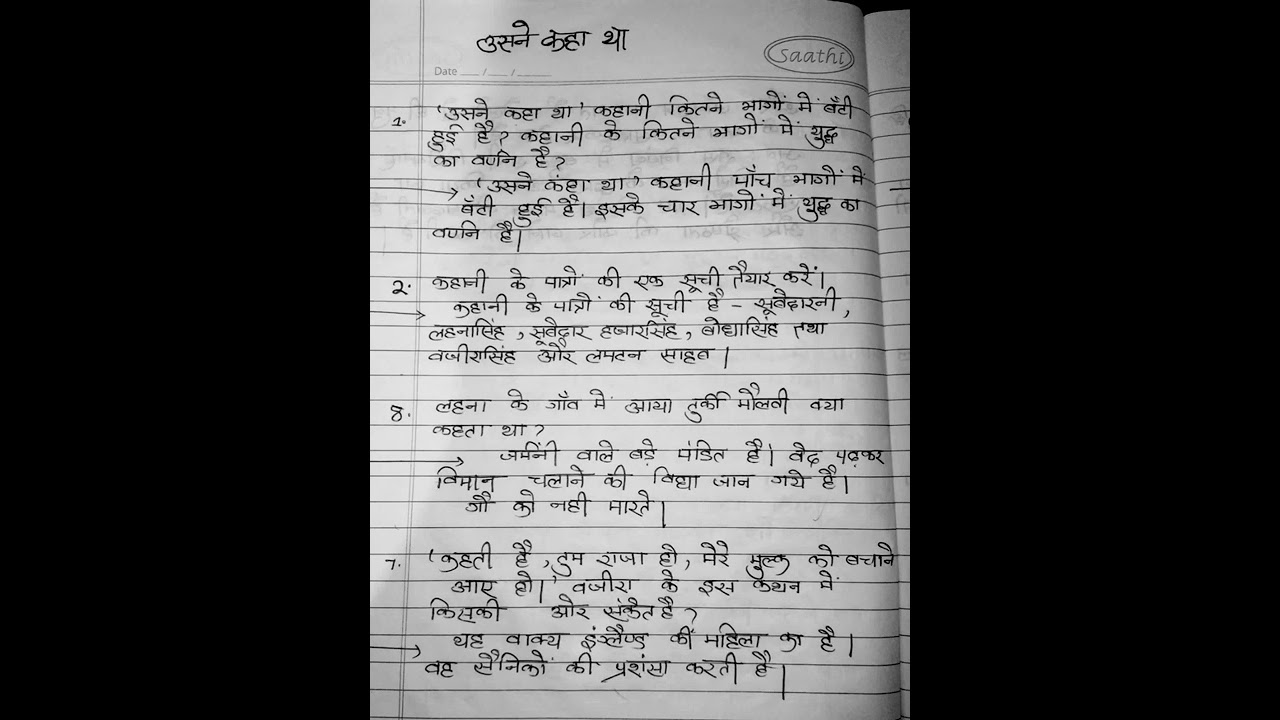 उसने कहा था
saathi
Date __/__/__
1. 'उसने कहा था' कहानी कितने भागों में बँटी
हुई है? कहानी के कितने भागों में युद्ध
का वर्णन है?
→ 'उसने कहा था' कहानी पाँच भागों में
बँटी हुई है। इसके चार भागों में युद्ध का
वर्णन है।
2. कहानी के पात्रों की एक सूची तैयार करें।
→ कहानी के पात्रों की सूची है - सूबेदारनी,
लहनासिंह, सूबेदार हजारसिंह, बोधासिंह तथा
वजीरासिंह और लपटन साहब।
8. लहना के गाँव में आया तुर्की मौलवी क्या
कहता था?
→ जर्मनी वाले बड़े पंडित है। वेद पढ़कर
विमान चलाने की विद्या जान गये है।
गौ को नही मारते।
7. 'कहती है, तुम राजा हो, मेरे मुल्क को बचाने
आए हो।' वजीरा के इस कथन में
किसकी ओर संकेत है?
→ यह वाक्य इंग्लैण्ड की महिला का है।
वह सैनिकों की प्रशंसा करती है।